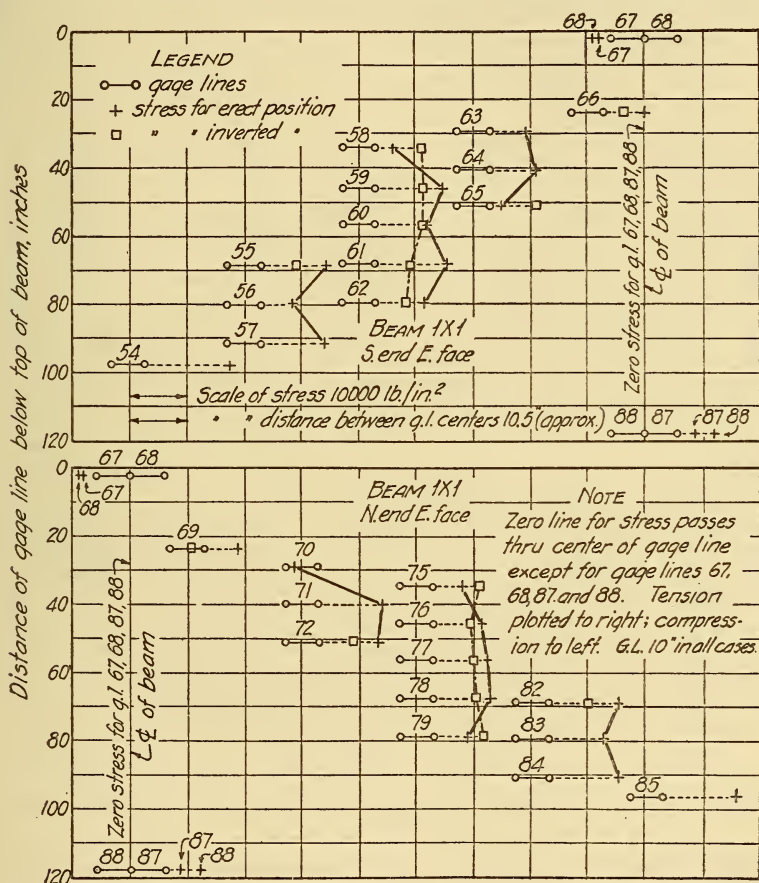 Distance of gage line below top of beam, inches
0
20
40
60
80
100
120
LEGEND
gage lines
+ stress for erect position
" " inverted "
68
67
67 68
66
63
64
65
58
59
60
61
62
55
56
57
54
BEAM 1X1
S. end E. face
Zero stress for g.l. 67, 68, 87, 88
₵ of beam
Scale of stress 10000 lb./in.²
" " distance between g.l. centers 10.5" (approx.)
88 87 87 88
0
20
40
60
80
100
120
67 68
67
68
69
70
71
72
75
76
77
78
79
82
83
84
85
BEAM 1X1
N. end E. face
NOTE
Zero line for stress passes
thru center of gage line
except for gage lines 67,
68, 87, and 88. Tension
plotted to right; compress-
ion to left. G.L. 10" in all cases.
Zero stress for g.l. 67, 68, 87, 88
₵ of beam
88 87
87
88